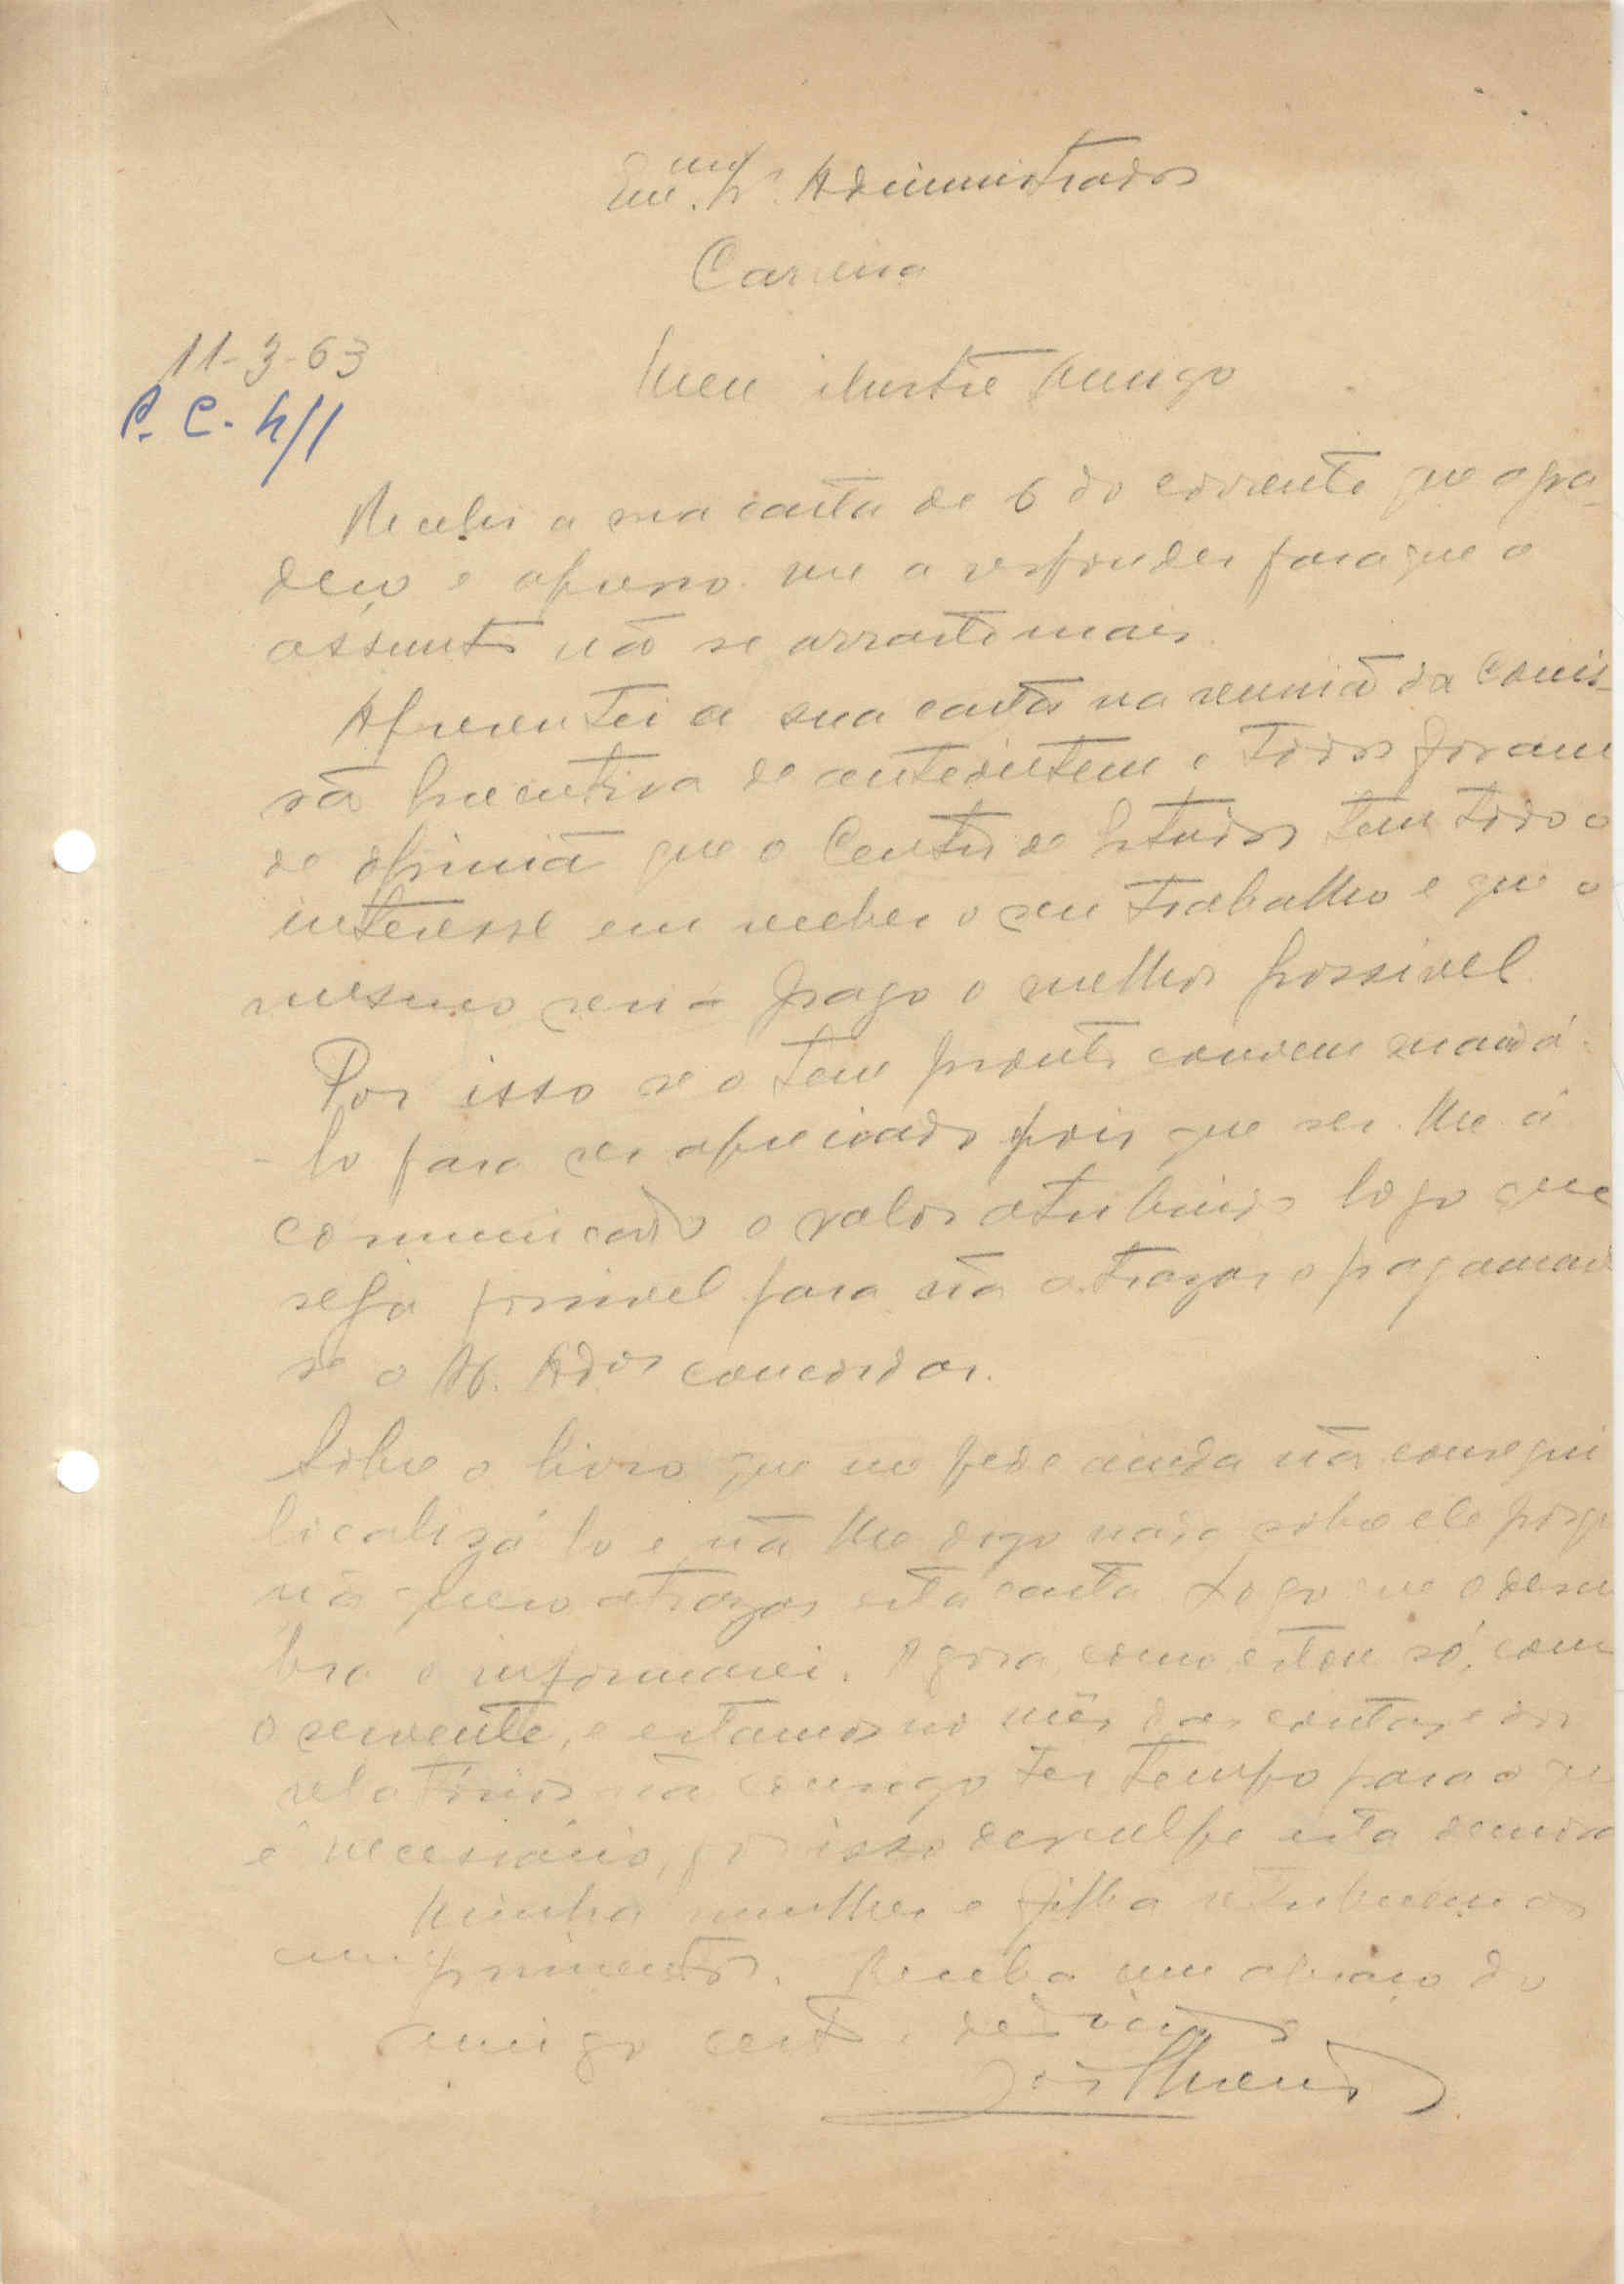 Exmo. Sr. Administrador
Carreira
11-3-63
Meu ilustre Amigo
P. C. 4/1
Recebi a sua carta de 6 do corrente que agra-
deço e apresso-me a responder para que o
assunto não se arraste mais.
Apresentei a sua carta na reunião da Comis-
são Executiva de anteontem e todos foram
de opinião que o Centro de Estudos tem todo o
interesse em receber o seu trabalho e que o
mesmo será pago o melhor possivel.
Por isso se o tem pronto convem mandá-
-lo para ser apreciado pois que ser-lhe-á
comunicado o valor atribuido logo que
seja possivel para não atrazar o pagamento
se o Sr. Ador concordar.
Sobre o livro que me pede ainda não consegui
localizá-lo e não lhe digo nada sobre ele porque
não quero atrazar esta carta. Logo que o descu
bra o informarei. Agora, como estou só, com
o servente, e estamos no mês das contas e dos
relatórios não consigo ter tempo para o que
é necessário, por isso desculpe esta demora
Minha mulher e filha retribuem os
cumprimentos. Receba um abraço do
amigo certo e dedicado